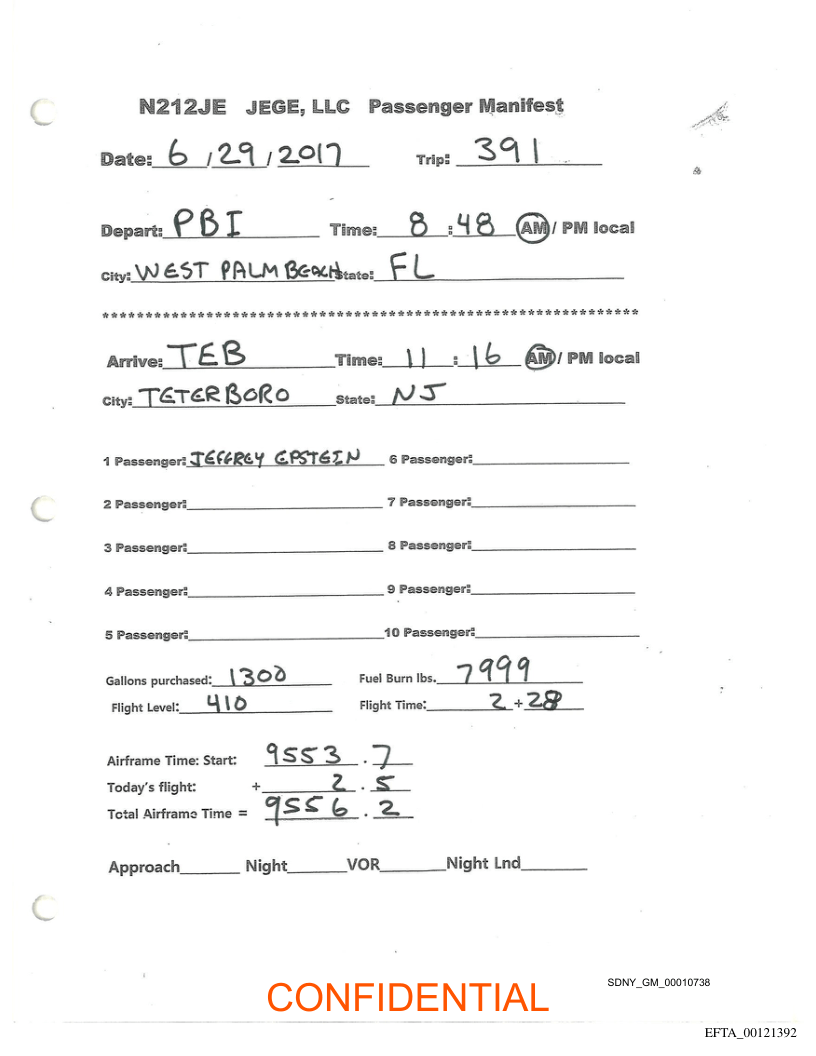 N212JE JEGE, LLC Passenger Manifest
Date: 6 / 29 / 2017 Trip: 391
Depart: PBI Time: 8 : 48 AM / PM local
City: WEST PALM BEACH State: FL
****************************************************************
Arrive: TEB Time: 11 : 16 AM / PM local
City: TETERBORO State: NJ
1 Passenger: JEFFREY EPSTEIN 6 Passenger:
2 Passenger: 7 Passenger:
3 Passenger: 8 Passenger:
4 Passenger: 9 Passenger:
5 Passenger: 10 Passenger:
Gallons purchased: 1300 Fuel Burn lbs. 7999
Flight Level: 410 Flight Time: 2 + 28
Airframe Time: Start: 9553 . 7
Today's flight: + 2 . 5
Total Airframe Time = 9556 . 2
Approach Night VOR Night Lnd
SDNY_GM_00010738
CONFIDENTIAL
EFTA_00121392